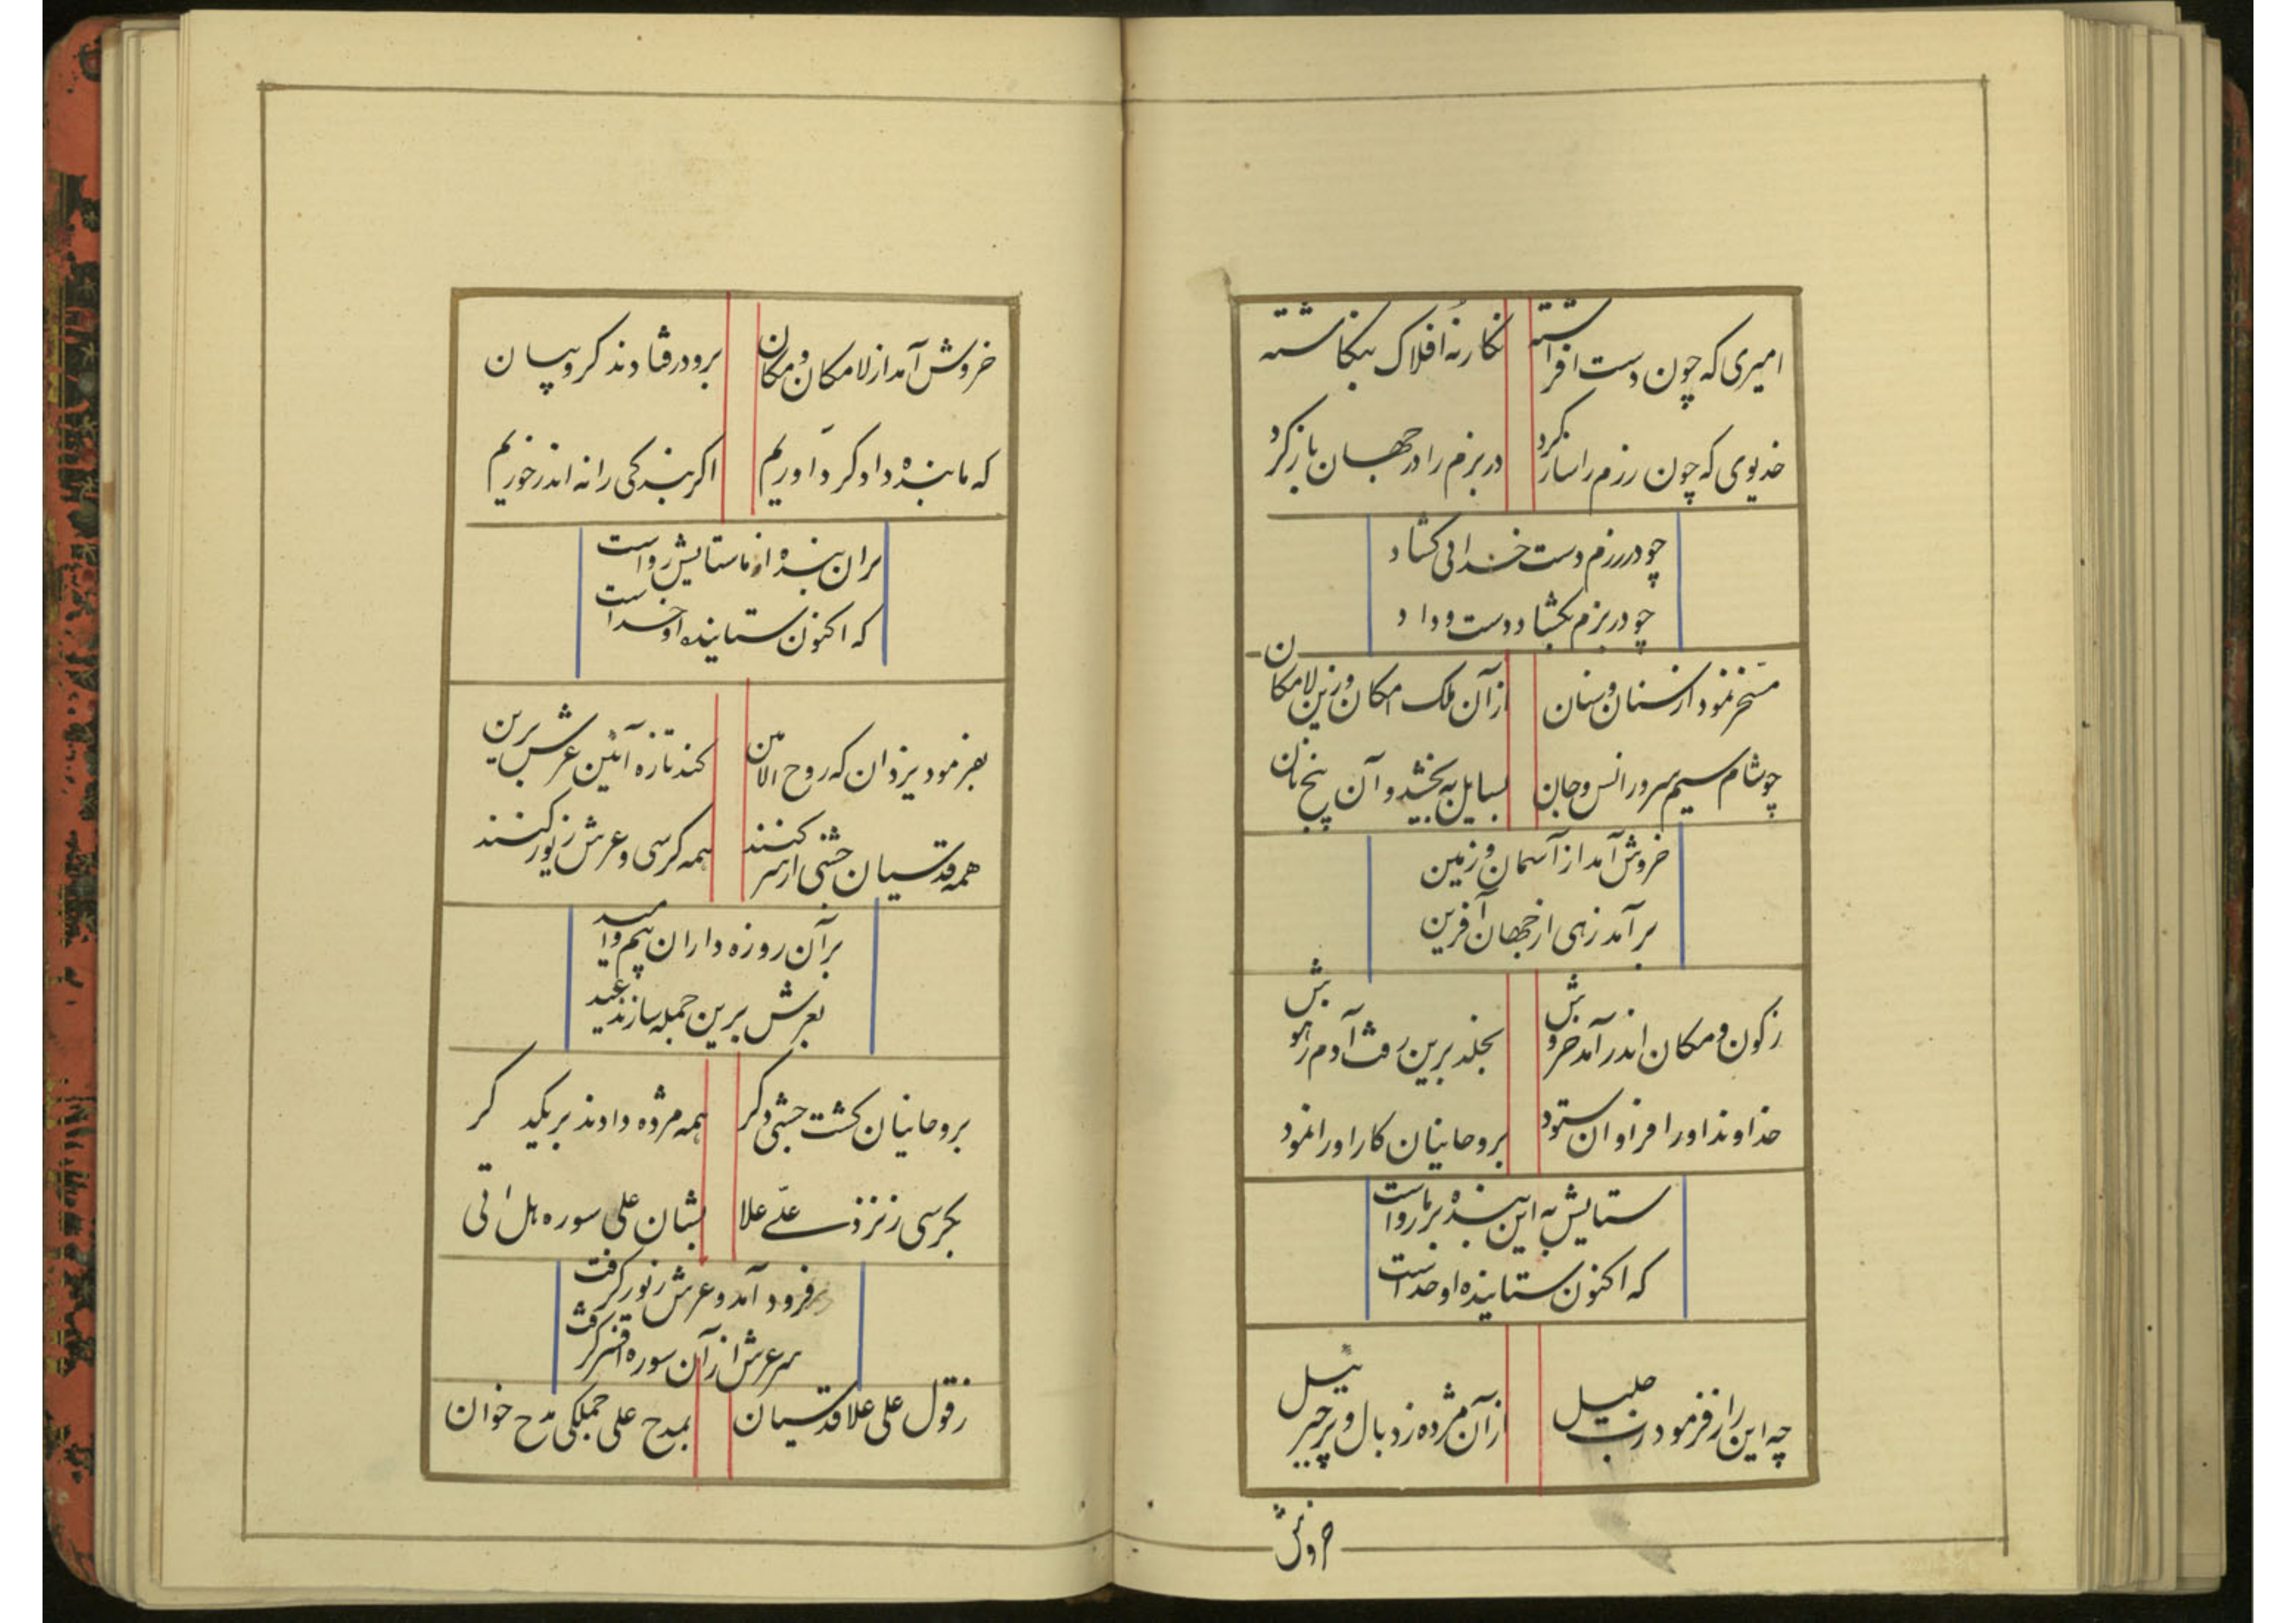 امیری که چون دست افراشته نگارنهٔ افلاک بنگاشته
خدیوی که چون رزم را ساز کرد در بزم را در جهان باز کرد
چو در رزم دست خدائی گشاد
چو در بزم بگشاد دست و داد
مسخر نمود از سنان و بنان از آن ملک امکان و زین لامکان
چو شام سیم سرور انس و جان بسایل به بخشید و آن پنج نان
خروش آمد از آسمان و زمین
برآمد زهی از جهان آفرین
ز کون و مکان اندر آمد خروش بخلد برین رفت آدم ز هوش
خداوند او را فراوان ستود بروحانیان کار او را نمود
ستایش به این بنده بر ما رواست
که اکنون ستاینده او خداست
چه این راز فرمود رب جلیل از آن مژده زد بال و پر جبرئیل
خروش
خروش آمد از لامکان و مکان برو در فتادند کروبیان
که ما بنده دادگر داوریم اگر بندگی را نه اندر خوریم
مر آن بنده از ما ستایش رواست
که اکنون ستاینده او خداست
بفرمود یزدان که روح الامین کند تازه آئین عرش برین
همه قدسیان جشنی از سر کنند همه کرسی و عرش زیور کنند
بر آن روزه داران بیم و امید
بعرش برین جمله سازند عید
بروحانیان گشت جشنی دگر همه مژده دادند بر یکدگر
بکرسی ز نزد علی علا بشان علی سوره هل اتی
فرود آمد و عرش زیور گرفت
سر عرش از آن سوره افسر گرفت
ز قول علی علا قدسیان بمدح علی جملگی مدح خوان